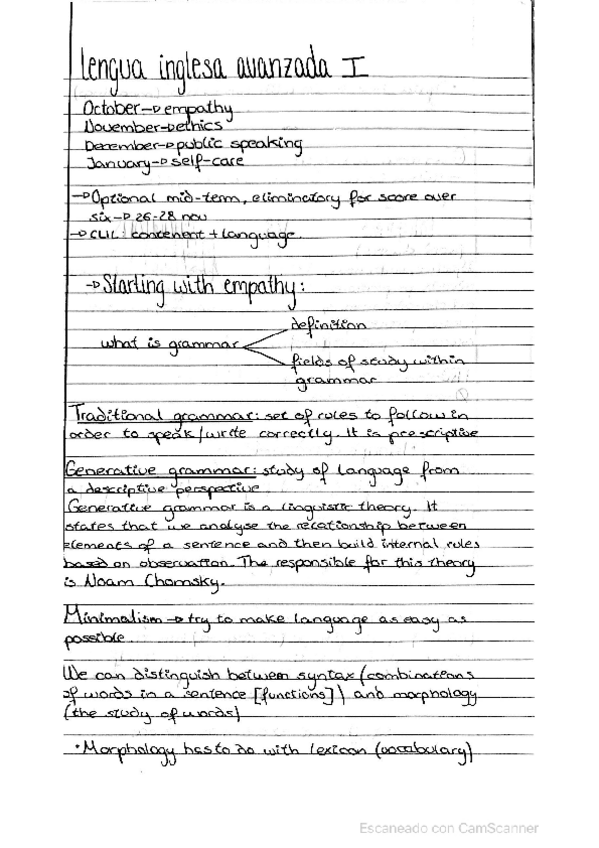 lengua inglesa avanzada I
October→empathy
November→ethics
December→public speaking
January→self-care
→Optional mid-term, eliminatory for score over
six→26-28 nov
→CLIL: contenent + language
→Starting with empathy:
definition
what is grammar
fields of study within
grammar
Traditional grammar: set of rules to follow in
order to speak/write correctly. It is prescriptive
Generative grammar: study of language from
a descriptive perspective
Generative grammar is a linguistic theory. It
states that we analyse the relationship between
elements of a sentence and then build internal rules
based on observation. The responsible for this theory
is Noam Chomsky.
Minimalism→try to make language as easy as
possible.
We can distinguish between syntax (combinations
of words in a sentence [functions]) and morphology
(the study of words)
·Morphology has to do with lexicon (vocabulary)
Escaneado con CamScanner